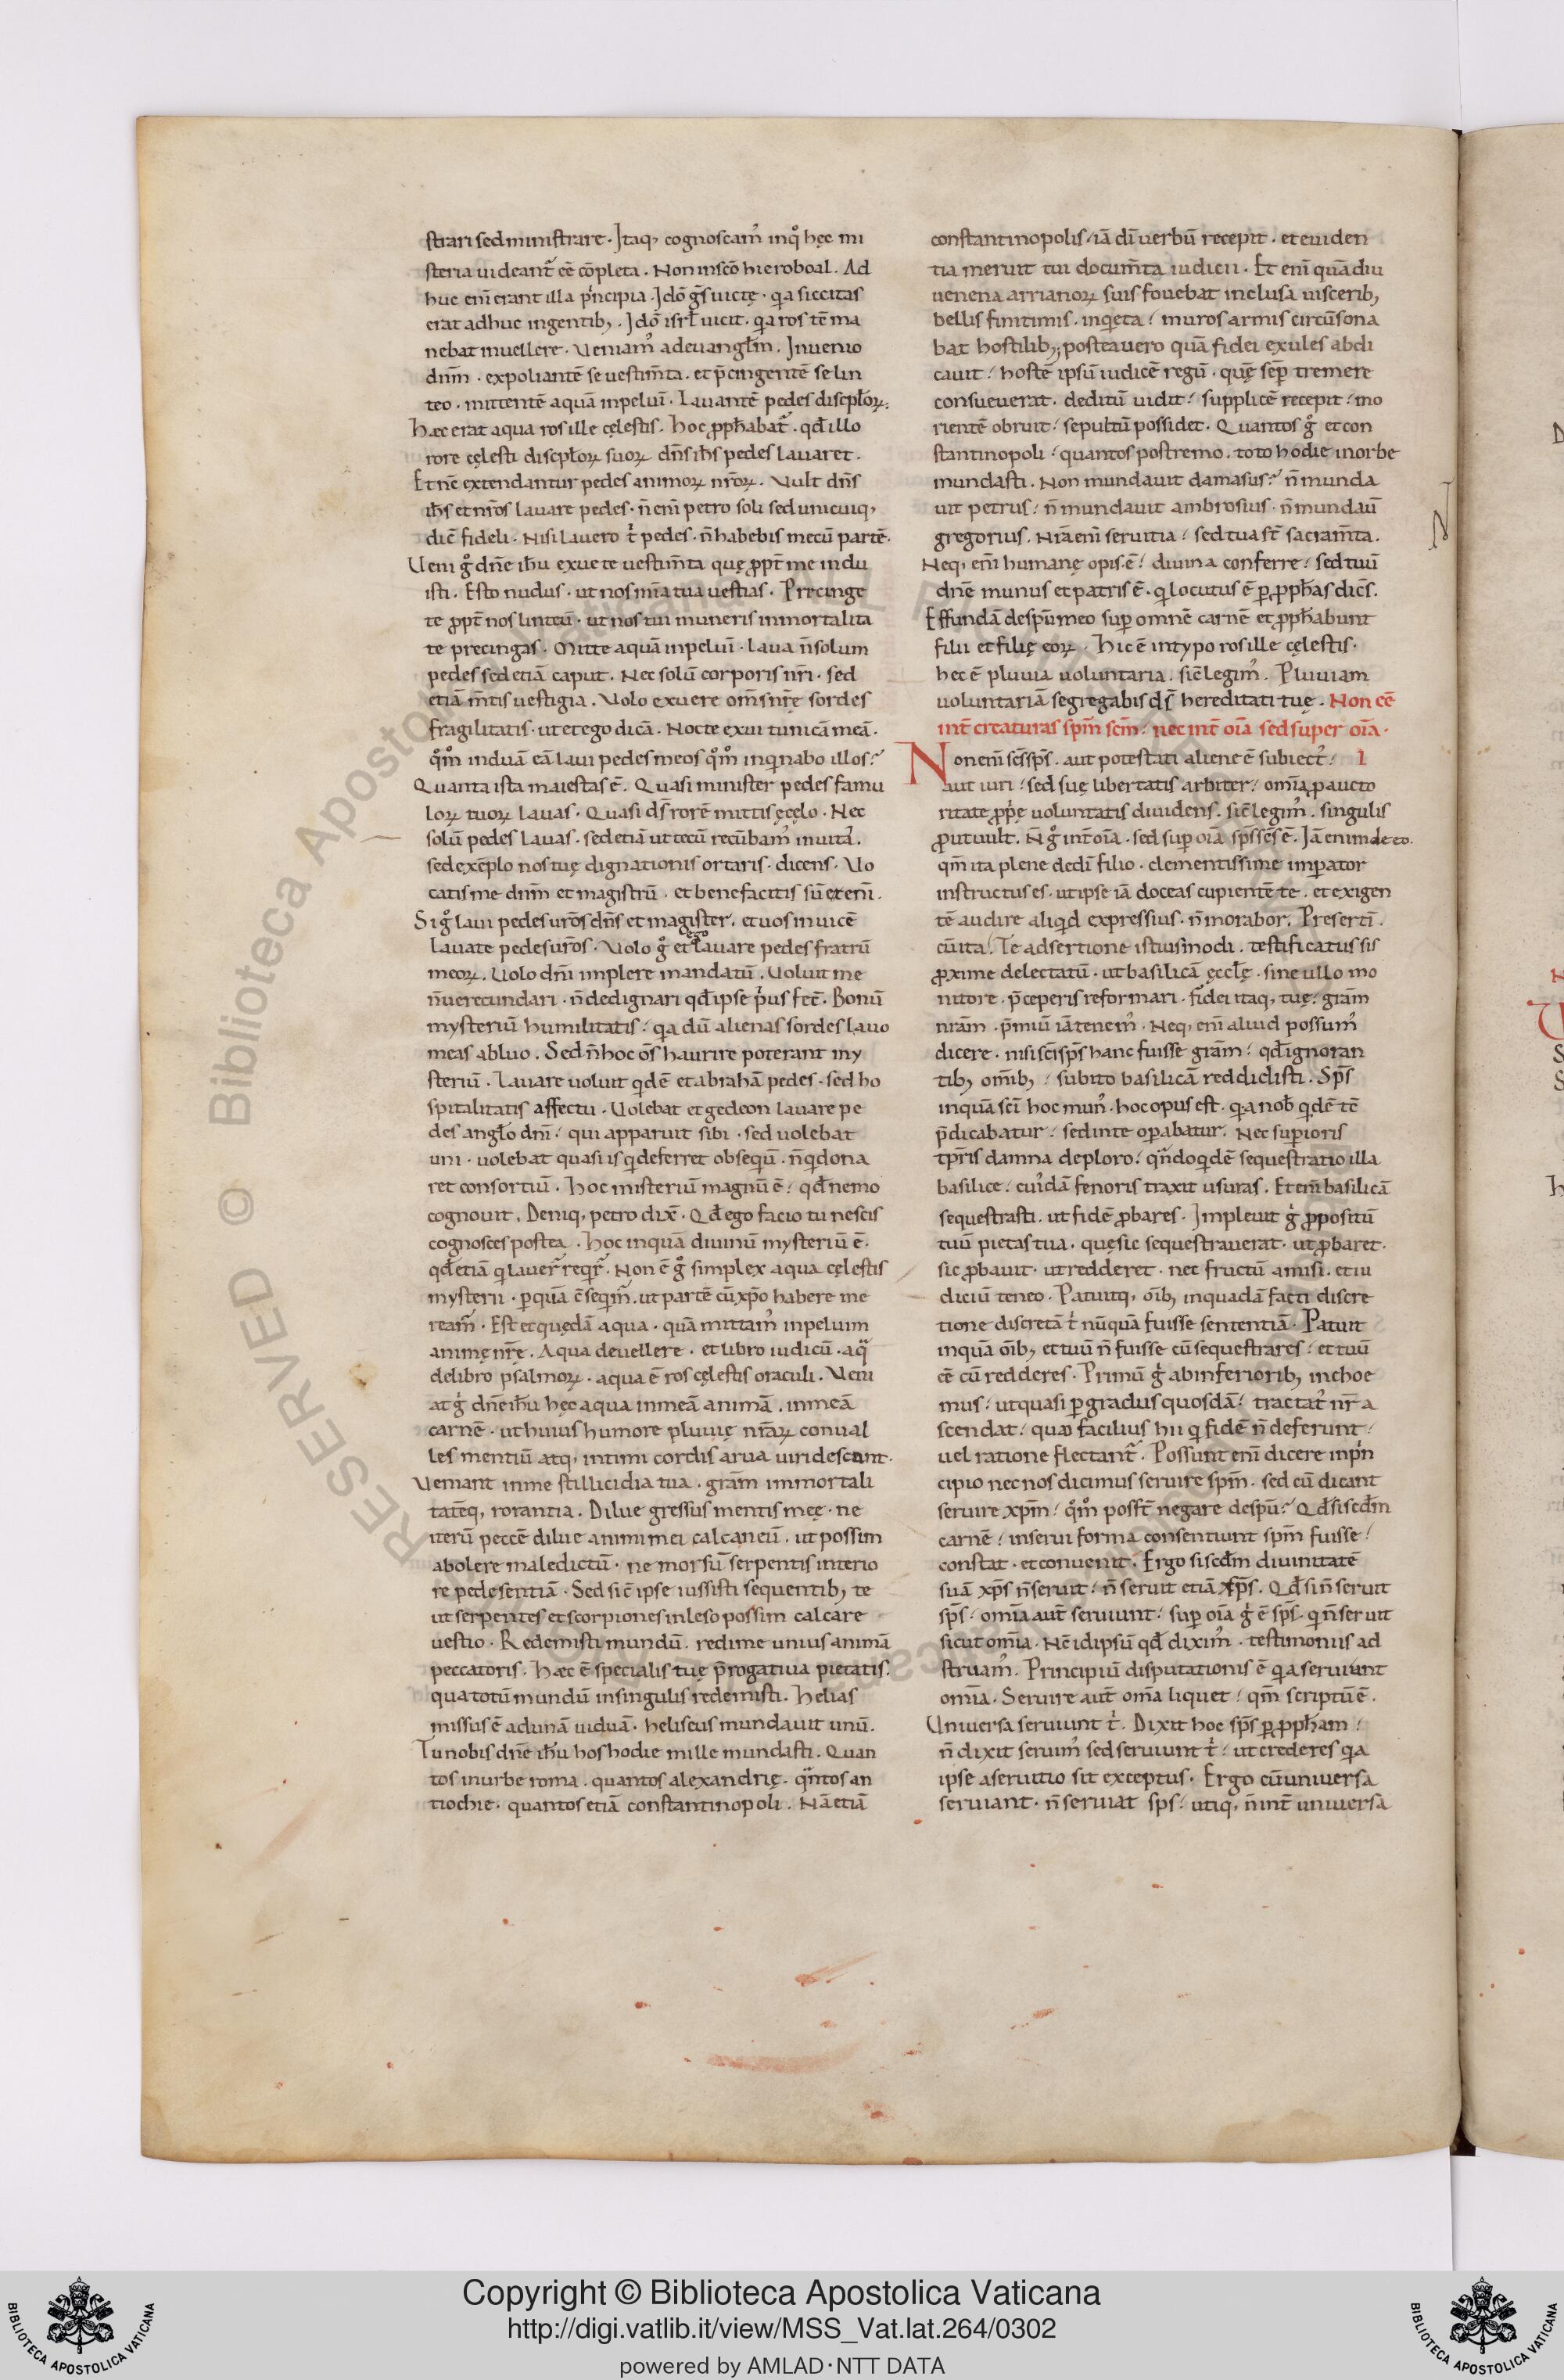 strari sed ministrare. Itaq, cognoscam᷒ inqͦ hęc mi
steria uideant᷑ eē cōpleta. Non in scō hieroboal. Ad
huc eni᷑ erant illa pͥncipia. Idō gs̄ uictę. qa siccitas
erat adhuc in gentib;. Idō isrł uicit. qa ros tē ma
nebat in uellere. Veniam᷒ ad euangłm. Inuenio
dnm̄. expoliantē se uestim̄ta. et p̄cingentē se lin
teo. mittentē aquā in peluī. Lauantē pedes discpłoꝝ.
Hæc erat aqua ros ille cęlestis. hoc ꝓph̄abat᷑. qđ illo
rore cęlesti discpłoꝝ suoꝝ dn̄s ih̄s pedes lauaret.
Et nc̄ extendantur pedes animoꝝ nr̄oꝝ. Vult dn̄s
ih̄s et nr̄os lauare pedes. n̄ eni᷑ petro soli sed unicuiq,
dic̄ fideli. Nisi lauero tͥ pedes. n̄ habebis mecū partē.
Veni gͦ dn̄e ih̄u exue te uestim̄ta quę ꝓpt̄ me indu
isti. Esto nudus. ut nos mīa tua uestias. Precinge
te ꝓpt̄ nos linteū. ut nos tui muneris inmortalita
te precingas. Mitte aquā in peluī. laua n̄ solum
pedes sed etiā caput. Nec solū corporis nr̄i. sed
etiā m̄tis uestigia. Volo exuere om̄s nr̄ę sordes
fragilitatis. ut et ego dicā. Nocte exui tunicā meā.
qͦm᷒ induā eā laui pedes meos qͦm᷒ inqinabo illos?
Quanta ista maiestas ē. Quasi minister pedes famu
loꝝ tuoꝝ lauas. Quasi ds̄ rorē mittis ęcęlo. Nec
solū pedes lauas. sed etiā ut tecū recūbam᷒ inuitͣ.
sed exēplo nos tuę dignationis ortaris. dicens. Vo
catis me dnm̄ et magistrū. et bene facitis sū et eni᷑.
Si gͦ laui pedes ur̄os dn̄s et magister. et uos inuicē
lauate pedes ur̄os. Volo gͦ et ego lauare pedes fratrū
meoꝝ. Volo dn̄i implere mandatū. Voluit me
n̄ uerecundari. n̄ dedignari qđ ipse pͥus fec̄. Bonū
mysteriū humilitatis. qa dū alienas sordes lauo
meas abluo. Sed n̄ hoc ōs haurire poterant my
steriū. Lauare uoluit qdē et abrahā pedes. sed ho
spitalitatis affectu. Volebat et gedeon lauare pe
des angło dn̄i. qui apparuit sibi. sed uolebat
uni. uolebat quasi is q deferret obseqiū. n̄ q dona
ret consortiū. Hoc misteriū magnū ē. qđ nemo
cognouit. Deniq, petro dix̄. Qđ ego facio tu nescis
cognosces postea. Hoc inquā diuinū mysteriū ē.
qđ etiā q lauer᷑ reqir᷑. Non ē gͦ simplex aqua cęlestis
mysterii. p qua c̄seqim᷑. ut partē cū xp̄o habere me
ream᷑. Est et quędā aqua. quā mittam᷒ in peluim
animę nr̄ę. Aqua de uellere. et libro iudicū. aqͣ
de libro psalmoꝝ. aqua ē ros cęlestis oraculi. Veni
at gͦ dn̄e ih̄u hęc aqua in meā animā. in meā
carnē. ut huius humore pluuię nr̄aꝝ conual
les mentiū atq, intimi cordis arua uiridescant.
Veniant in me stillicidia tua. grām immortali
tatēq, rorantia. Dilue gressus mentis meę. ne
iterū peccē dilue animi mei calcaneū. ut possim
abolere maledictū. ne morsū serpentis interio
re pede sentiā. Sed sic̄ ipse iussisti sequentib; te
ut serpentes et scorpiones inleso possim calcare
uestio. Redemisti mundū. redime unius animā
peccatoris. Hæc ē specialis tuę p̄rogatiua pietatis.
qua totū mundū in singulis redemisti. Helias
missus ē ad unā uiduā. heliseus mundauit unū.
Tu nobis dn̄e ih̄u hos hodie mille mundasti. Quan
tos in urbe roma. quantos alexandrię. qͣntos an
tiochie. quantos etiā constantinopoli. Nā etiā
constantinopolis. iā dī uerbū recepit. et euiden
tia meruit tui docum̄ta iudicii. Et eni᷑ quādiu
uenena arrianoꝝ suis fouebat inclusa uiscerib;
bellis finitimis. inqieta. muros armis circūsona
bat hostilib; postea uero quā fidei exules abdi
cauit. hostē ipsū iudicē regū. quę sep̄ tremere
consueuerat. deditū uidit. supplicē recepit. mo
rientē obruit. sepultū possidet. Quantos gͦ et con
stantinopoli. quantos postremo. toto hodie in orbe
mundasti. Non mundauit damasus? n̄ munda
uit petrus. n̄ mundauit ambrosius. n̄ mundaū
gregorius. Nrā eni᷑ seruitia. sed tua st̄ sacram̄ta.
Neq, eni᷑ humanę opis ē. diuina conferre. sed tuū
dn̄e munus et patris ē. q locutus ē p ꝓph̄as dic̄s.
Effundā de spū meo sup omnē carnē et ꝓph̄abunt
filii et filię eoꝝ. Hic ē in typo ros ille cęlestis.
hec ē pluuia uoluntaria. sic̄ legim᷒. Pluuiam
uoluntariā segregabis ds̄ hereditati tuę. Non eē
int̄ creaturas spm̄ scm̄. nec int̄ oīa sed super oīa.
Non eni᷑ scs̄ sps̄. aut potestati aliene ē subiect᷒. I
aut iuri. sed suę libertatis arbiter. omīa p aucto
ritate ꝓpͥę uoluntatis diuidens. sic̄ legim᷒. singulis
ꝓut uult. N̄ gͦ int̄ oīa. sed sup oīa sps̄ scs̄ ē. Iā enim de eo.
qm̄ ita plene dedī filio. clementissime impator
instructus es. ut ipse iā doceas cupientē te. et exigen
tē audire aliqid expressius. n̄ morabor. Presertī.
cū ita. Te adsertione istiusmodi. testificatus sis
ꝓxime delectatū. ut basilicā ęccłę. sine ullo mo
nitore. p̄ceperis reformari. fidei itaq, tuę. grām
nram̄. p̄miū iā tenem᷒. Neq, eni᷑ aliud possum᷒
dicere. nisi sc̄i sps̄ hanc fuisse grām. qđ ignoran
tib; om̄ib;. subito basilicā reddidisti. Sps̄
inquā sc̄i hoc mun᷒. hoc opus est. q a nob̄ qdē tē
p̄dicabatur. sed in te opabatur. Nec supioris
tp̄ris damna deploro. qn̄do qdē sequestratio illa
basilice. cui᷒dā fenoris traxit usuras. Et eni᷑ basilicā
sequestrasti. ut fidē ꝓbares. Impleuit gͦ ꝓpositū
tuū pietas tua. quę sic sequestrauerat. ut ꝓbaret.
sic ꝓbauit. ut redderet. nec fructū amisi. et iu
diciū teneo. Patuitq, oīb; in quadā facti discre
tione discretā tͥ nūquā fuisse sententiā. Patuit
inquā oīb; et tuū n̄ fuisse cū sequestrares. et tuū
eē cū redderes. Primū gͦ ab inferiorib; inchoe
mus. ut quasi p gradus quosdā. tractat᷒ nr̄ a
scendat. quo facilius hii q fidē n̄ deferunt.
uel ratione flectant᷑. Possunt eni᷑ dicere in pͥn
cipio nec nos dicimus seruire spm̄. sed cū dicant
seruire xpm̄. qͦm᷒ posst̄ negare de spū? Qđ si scđm
carnē. in serui forma consentiunt spm̄ fuisse.
constat. et conuenit. Ergo si scđm diuinitatē
suā xps̄ n̄ seruit. n̄ seruit etiā sps̄. Qđ si n̄ seruit
sps̄. omīa aut̄ seruiunt. sup oīa gͦ ē sps̄. q n̄ seruit
sicut omīa. Nc̄ id ipsū qđ dixim᷒. testimoniis ad
struam᷒. Principiū disputationis ē qa seruiunt
omīa. Seruire aut̄ omīa liquet. qm̄ scriptū ē.
Uniuersa seruiunt tͥ. Dixit hoc sps̄ p ꝓph̄am.
n̄ dixit seruim᷒ sed seruiunt tͥ. ut crederes qa
ipse a seruitio sit exceptus. Ergo cū uniuersa
seruiant. n̄ seruiat sps. utiq, n̄ int̄ uniuersa
Copyright © Biblioteca Apostolica Vaticana
http://digi.vatlib.it/view/MSS_Vat.lat.264/0302
powered by AMLAD·NTT DATA